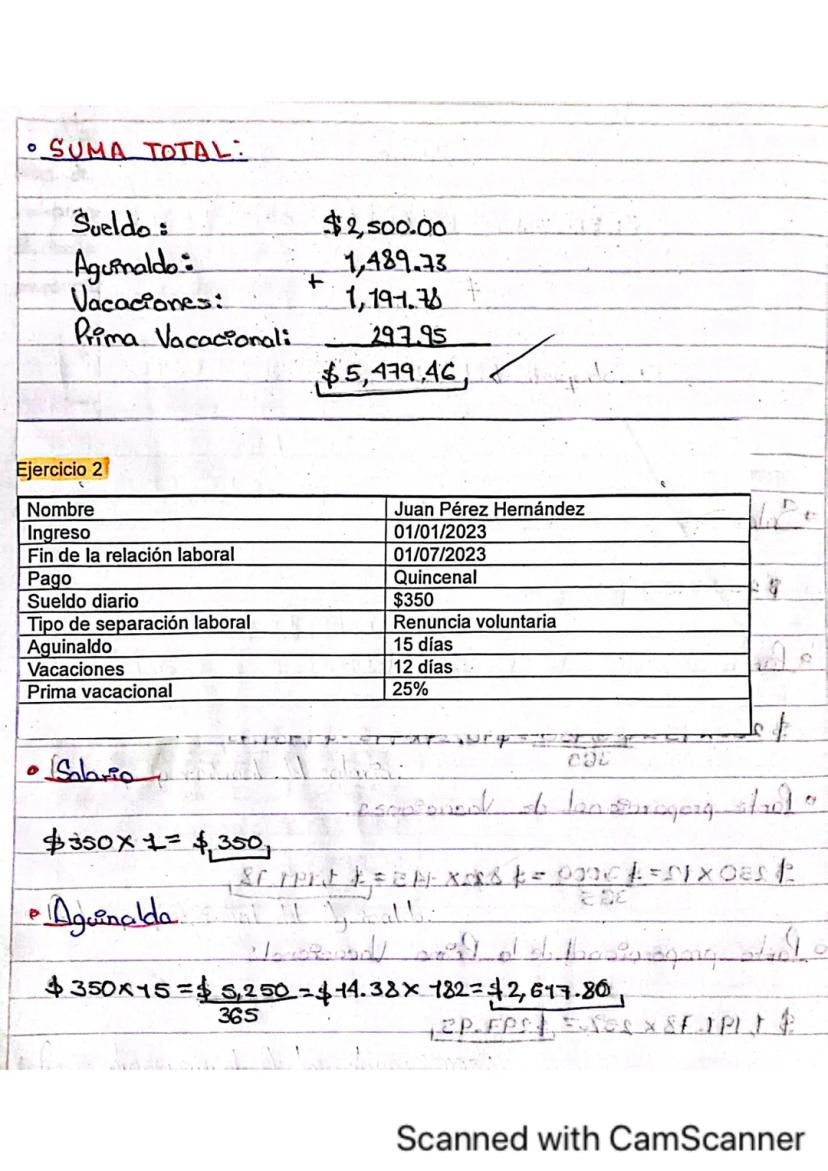 • SUMA TOTAL:
Sueldo: $2,500.00
Aguinaldo: 1,489.73
+
Vacaciones: 1,191.78
Prima Vacacional: 297.95
$5,479.46
Ejercicio 2
Nombre Juan Pérez Hernández
Ingreso 01/01/2023
Fin de la relación laboral 01/07/2023
Pago Quincenal
Sueldo diario $350
Tipo de separación laboral Renuncia voluntaria
Aguinaldo 15 días
Vacaciones 12 días
Prima vacacional 25%
• Salario
$350 x 1 = $350
• Aguinaldo
$350 x 15 = $5,250 = $14.38 x 182 = $2,617.80
365
Scanned with CamScanner